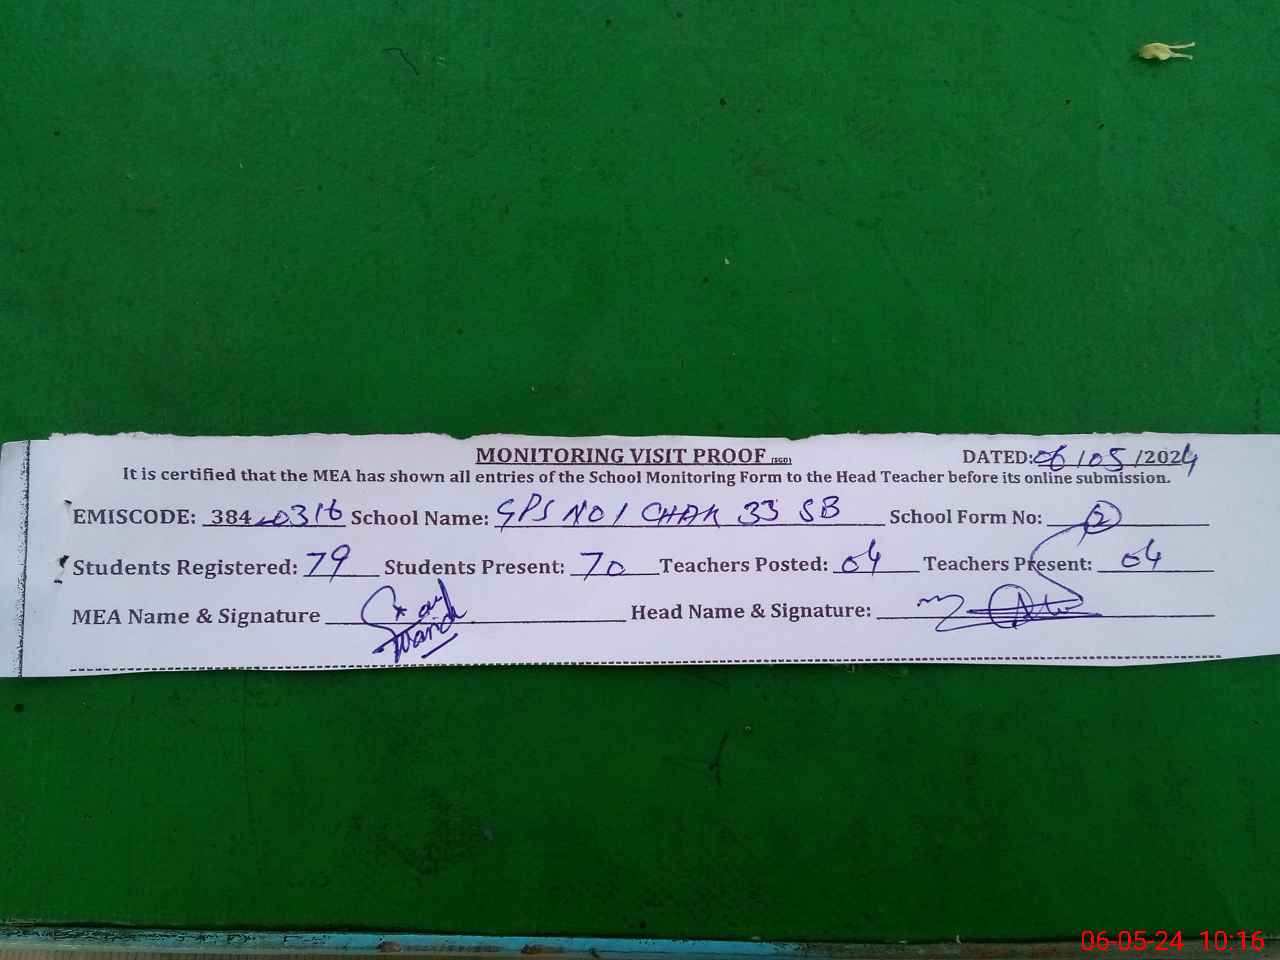 MONITORING VISIT PROOF (SGD)
DATED: 06/05/2024
It is certified that the MEA has shown all entries of the School Monitoring Form to the Head Teacher before its online submission.
EMISCODE: 384 20316 School Name: GPS NO 1 CHAK 33 SB School Form No: 2
Students Registered: 79 Students Present: 70 Teachers Posted: 04 Teachers Present: 04
MEA Name & Signature Head Name & Signature:
06-05-24 10:16